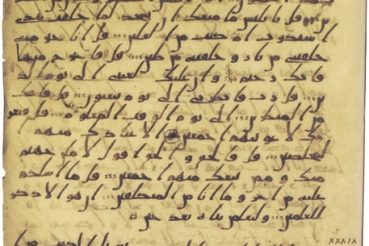 ين قال يابليس ما منعك ان تسجد لما خلقت بيد
استكبرت ام كنت من العلين قال انا خير منه
خلقتني من نار و خلقته من طين قال فاخرج منها
فانك رجيم و ان عليك لعنتي الى يوم الد
ين قال رب فانظرني الى يوم يبعثون قال فانك
من المنظرين الى يوم الوقت المعلوم قال فبعز
تك لاغوينهم اجمعين الا عبادك منهم ا
لمخلصين قال فالحق و الحق اقول لاملن جهنم
منك و ممن تبعك منهم اجمعين قل ما اسلكم
عليه من اجر و ما انا من المتكلفين ان هو الا ذكر
للعلمين و لتعلمن نباه بعد حين
XXXIX